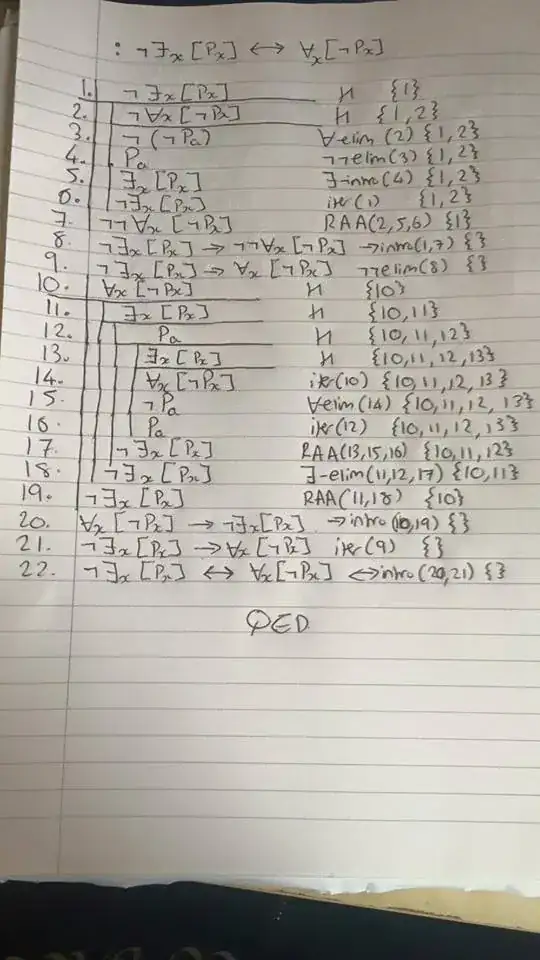 : ¬∃x[Px] ↔ ∀x[¬Px]
1. ¬∃x[Px] H {1}
2. ¬∀x[¬Px] H {1,2}
3. ¬(¬Pa) ∀elim(2) {1,2}
4. Pa ¬¬elim(3) {1,2}
5. ∃x[Px] ∃-intro(4) {1,2}
6. ¬∃x[Px] iter(1) {1,2}
7. ¬¬∀x[¬Px] RAA(2,5,6) {1}
8. ¬∃x[Px] → ¬¬∀x[¬Px] →intro(1,7) {}
9. ¬∃x[Px] → ∀x[¬Px] ¬¬elim(8) {}
10. ∀x[¬Px] H {10}
11. ∃x[Px] H {10,11}
12. Pa H {10,11,12}
13. ∃x[Px] H {10,11,12,13}
14. ∀x[¬Px] iter(10) {10,11,12,13}
15. ¬Pa ∀elim(14) {10,11,12,13}
16. Pa iter(12) {10,11,12,13}
17. ¬∃x[Px] RAA(13,15,16) {10,11,12}
18. ¬∃x[Px] ∃-elim(11,12,17) {10,11}
19. ¬∃x[Px] RAA(11,18) {10}
20. ∀x[¬Px] → ¬∃x[Px] →intro(10,19) {}
21. ¬∃x[Px] → ∀x[¬Px] iter(9) {}
22. ¬∃x[Px] ↔ ∀x[¬Px] ↔intro(20,21) {}
QED